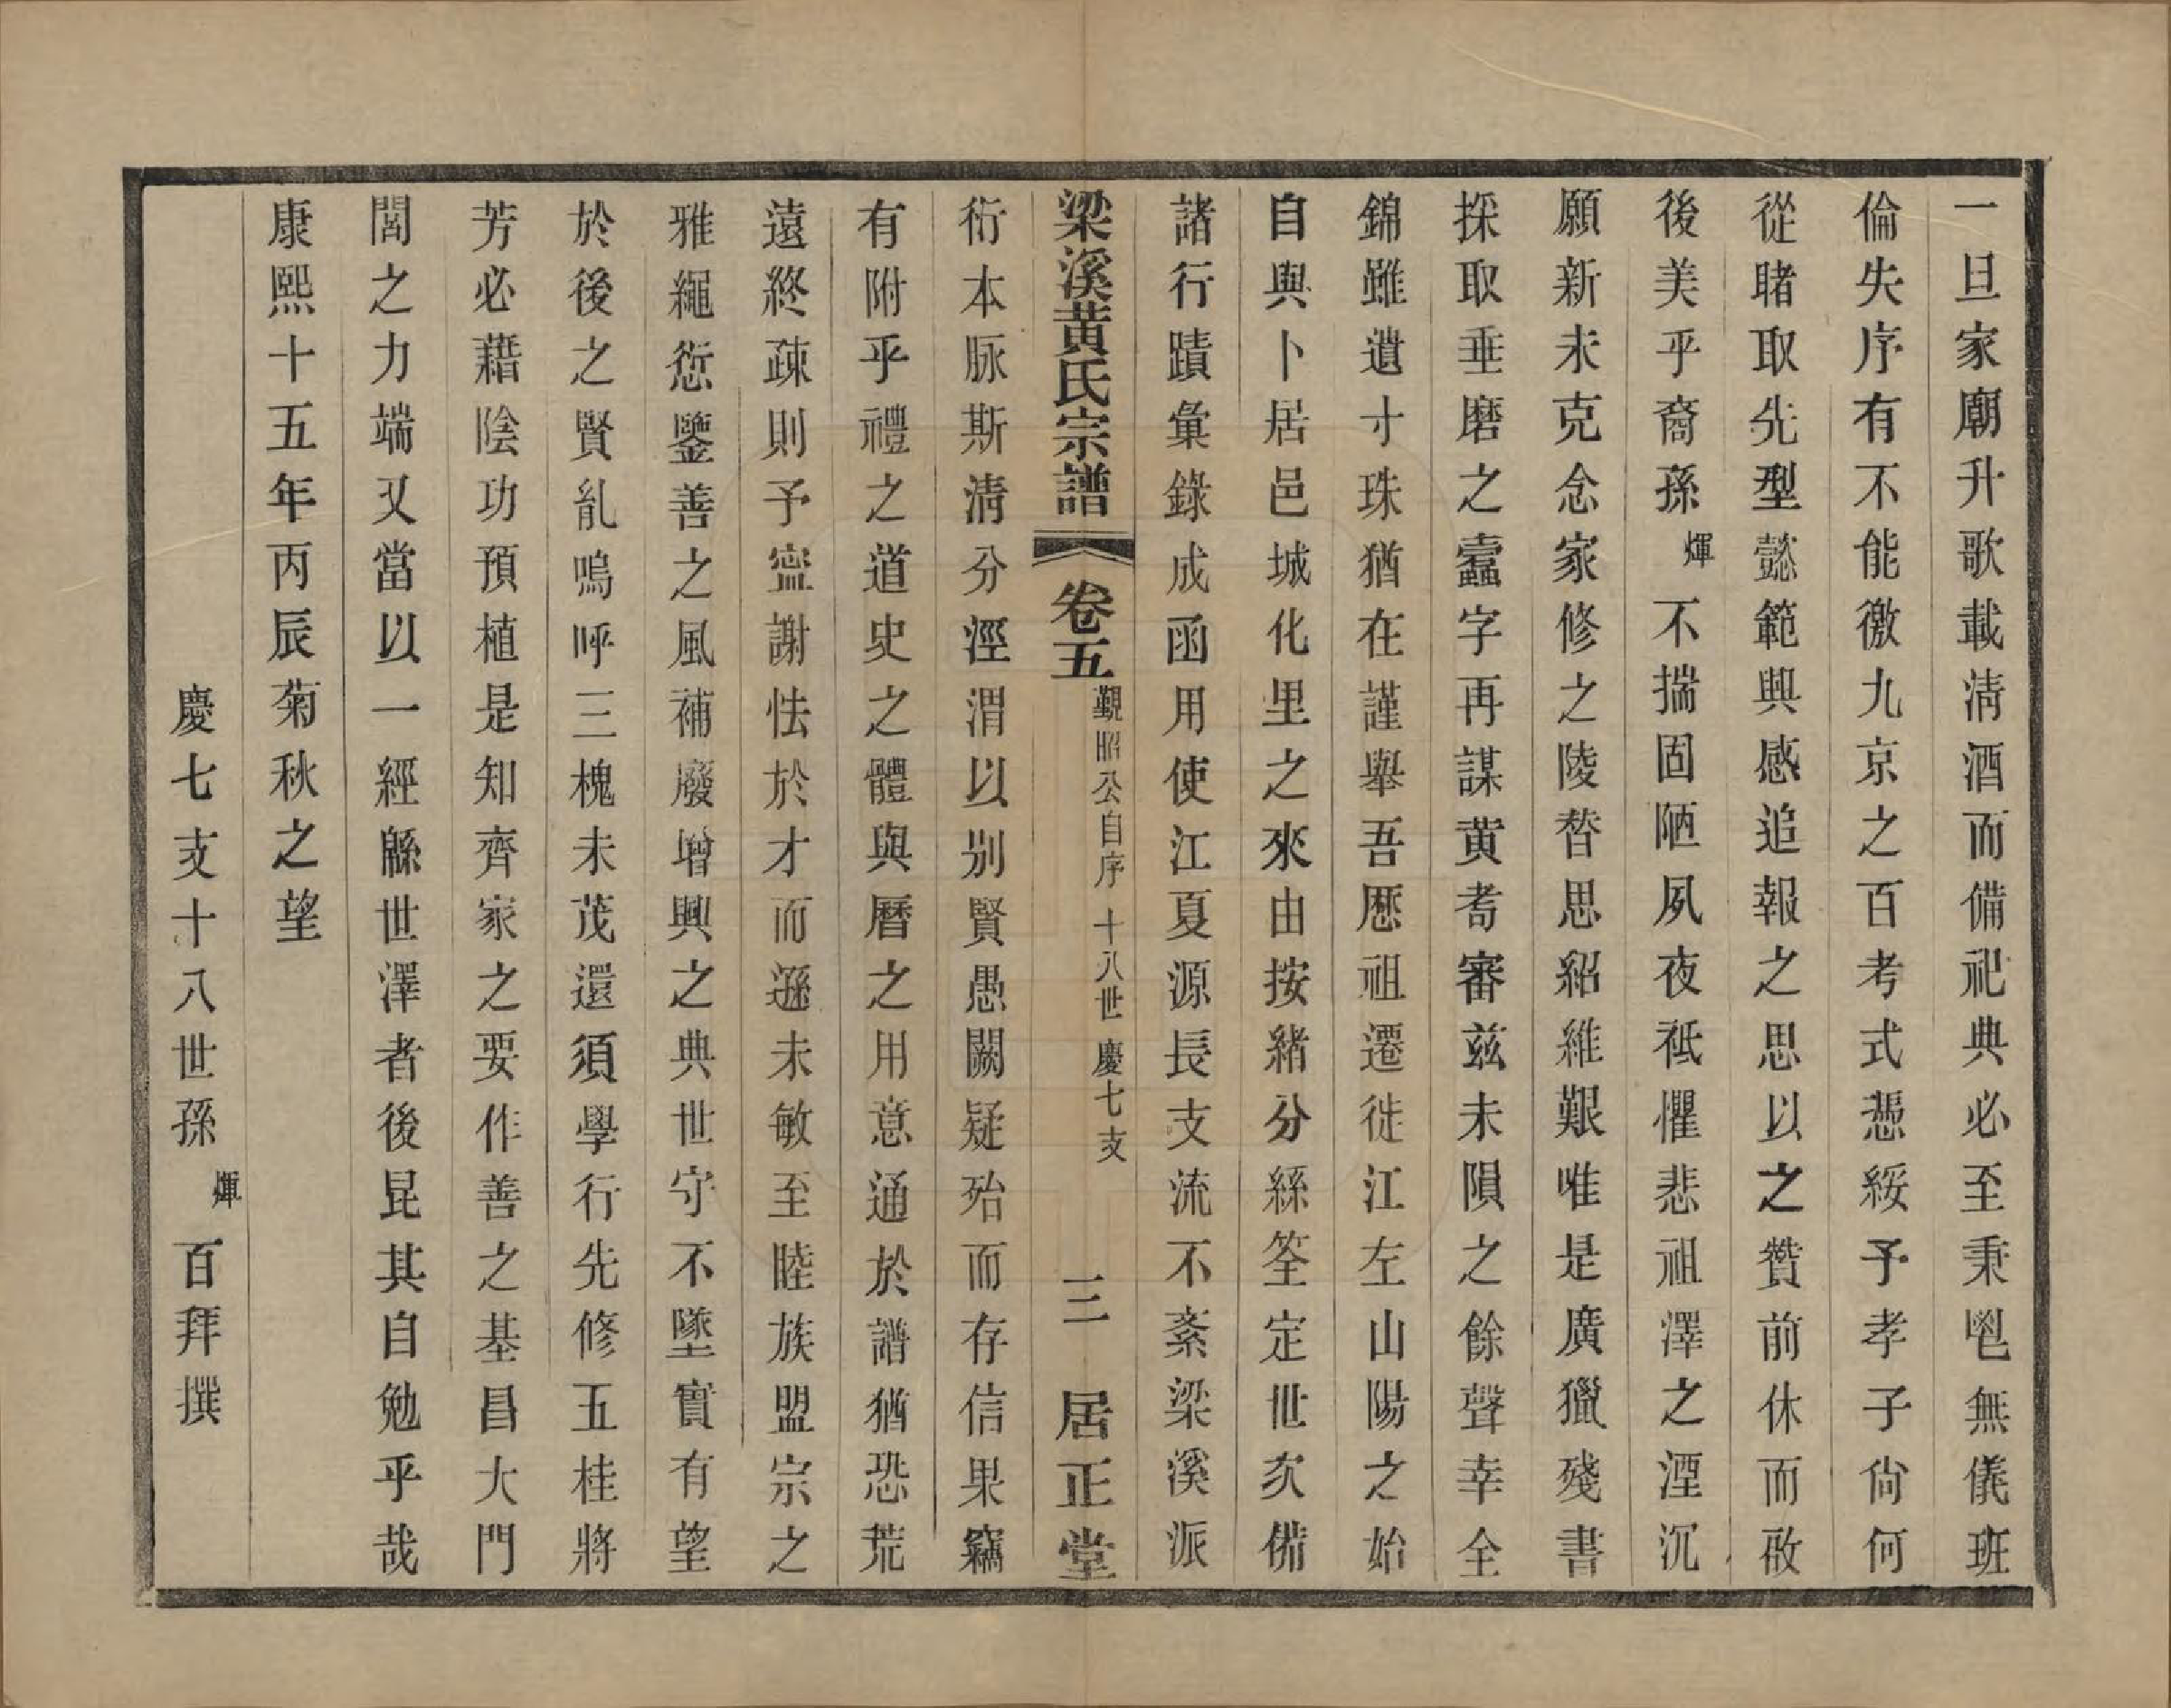 一旦家廟升歌載清酒而備祀典必至秉鬯無儀班
倫失序有不能徼九京之百考式憑綏予孝子尙何
從睹取先型懿範興感追報之思以之贊前休而啟
後美乎裔孫煇不揣固陋夙夜祗懼悲祖澤之湮沉
願新未克念家修之陵替思紹維艱唯是廣獵殘書
採取垂磨之蠹字再謀黄耇審兹未隕之餘聲幸全
錦雖遺寸珠猶在謹舉吾厯祖遷徙江左山陽之始
自與卜居邑城化里之來由按緒分絲筌定世次備
諸行蹟彙錄成函用使江夏源長支流不紊梁溪派
梁溪黄氏宗譜 卷五 覲昭公自序 十八世 慶七支 三 居正堂
衍本脉斯淸分涇渭以别賢愚闕疑殆而存信果竊
有附乎禮之道史之體與曆之用意通於譜猶恐荒
遠終疎則予寍謝怯於才而遜未敏至睦族盟宗之
雅繩愆鑒善之風補廢增興之典世守不墜實有望
於後之賢亂嗚呼三槐未茂還須學行先修五桂將
芳必藉陰功預植是知齊家之要作善之基昌大門
閭之力端又當以一經緜世澤者後昆其自勉乎哉
康熙十五年丙辰菊秋之望
慶七支十八世孫煇百拜撰